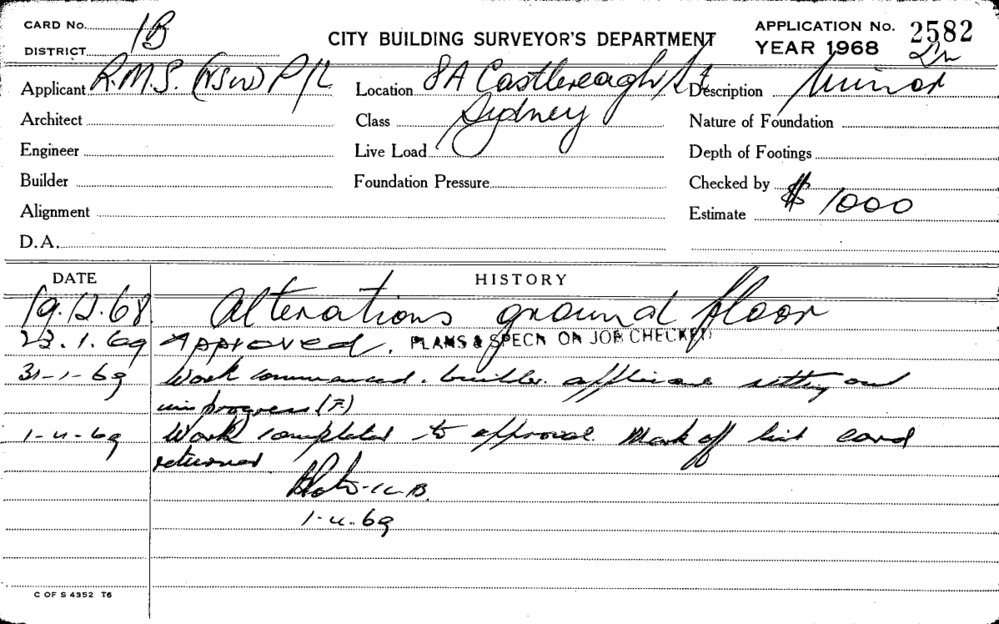 CARD No. 1B
DISTRICT
CITY BUILDING SURVEYOR'S DEPARTMENT
APPLICATION No. 2582
YEAR 1968
Applicant R.M.S. (NSW) P/L
Location 8A Castlereagh St
Sydney
Description Minor
Architect
Class
Nature of Foundation
Engineer
Live Load
Depth of Footings
Builder
Foundation Pressure
Checked by
Alignment
Estimate $1000
D.A.
DATE HISTORY
19.12.68 Alterations ground floor
23.1.69 Approved. PLANS & SPECN ON JOB CHECKED
31-1-69 Work commenced. builder setting out
in progress (F)
1-4-69 Work completed to approval. Mark off list card
returned
1-4-69
C OF S 4352 T6